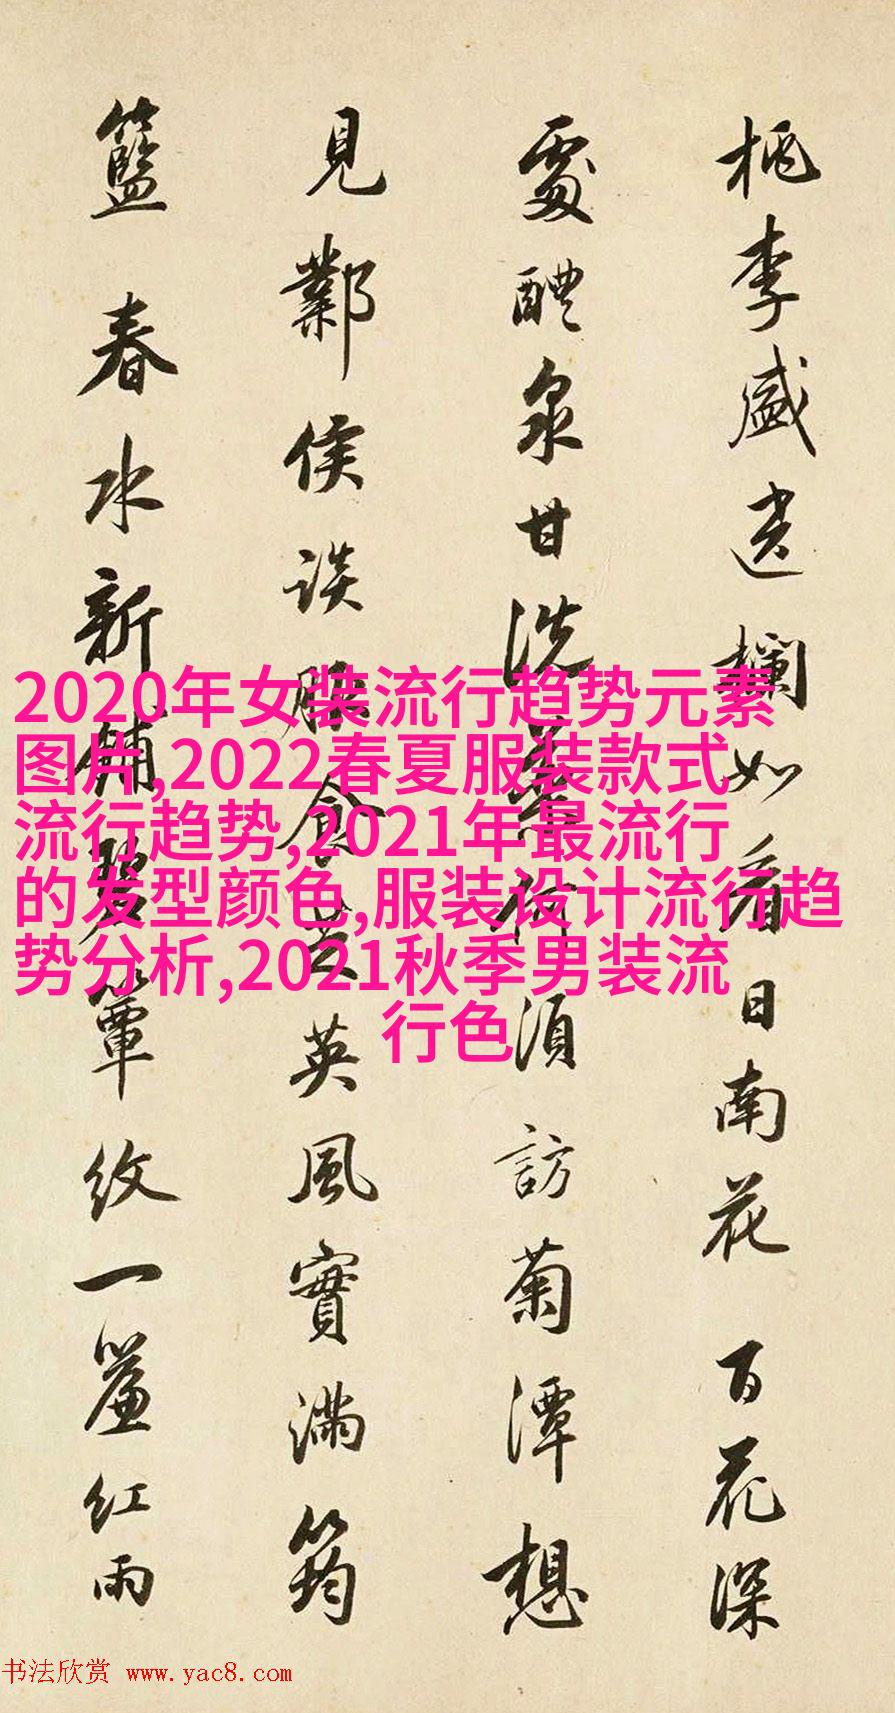 桃李盛欄如看日南花 百花深
處醴泉甘洗藥何須訪菊潭想
見鄴侯談服食英風實滿筠
籃 春水新鋪碧簟紋一簾紅雨
2020年女装流行趋势元素
图片,2022春夏服装款式
流行趋势,2021年最流行
的发型颜色,服装设计流行趋
势分析,2021秋季男装流
行色
书法欣赏 www.yac8.com